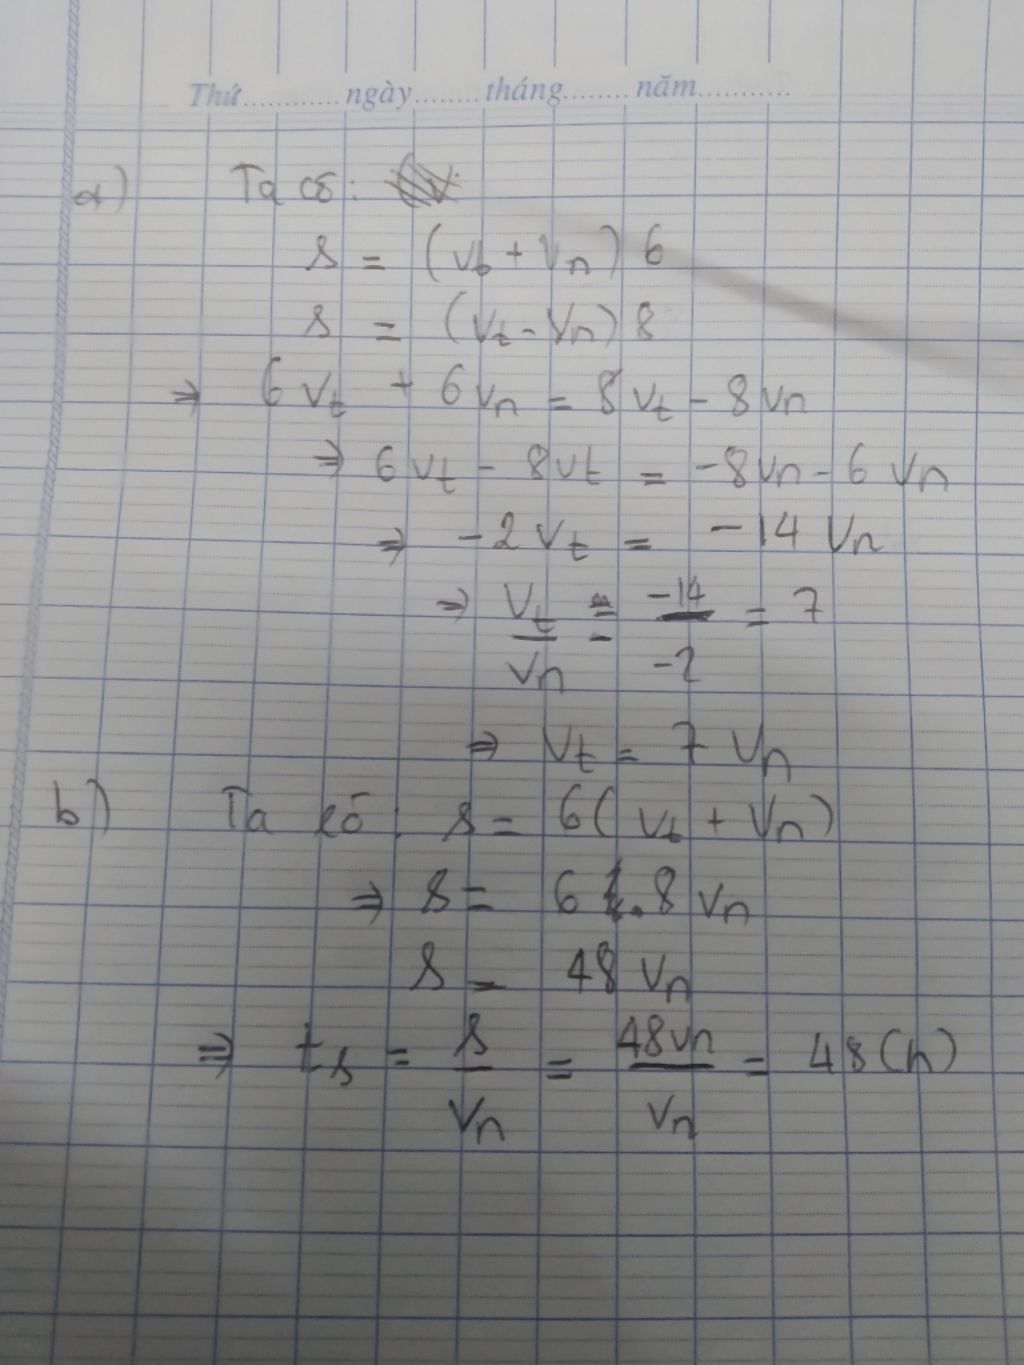 Thứ............ngày........tháng........năm...........
a) Ta có:
s = (vb + vn) 6
s = (vt - vn) 8
⇒ 6 vt + 6 vn = 8 vt - 8 vn
⇒ 6 vt - 8 vt = -8 vn - 6 vn
⇒ -2 vt = -14 vn
⇒ vt/vn = -14/-2 = 7
⇒ vt = 7 vn
b) Ta có: s = 6( vt + vn)
⇒ s = 6 . 8 vn
s = 48 vn
⇒ ts = s/vn = 48vn/vn = 48(h)